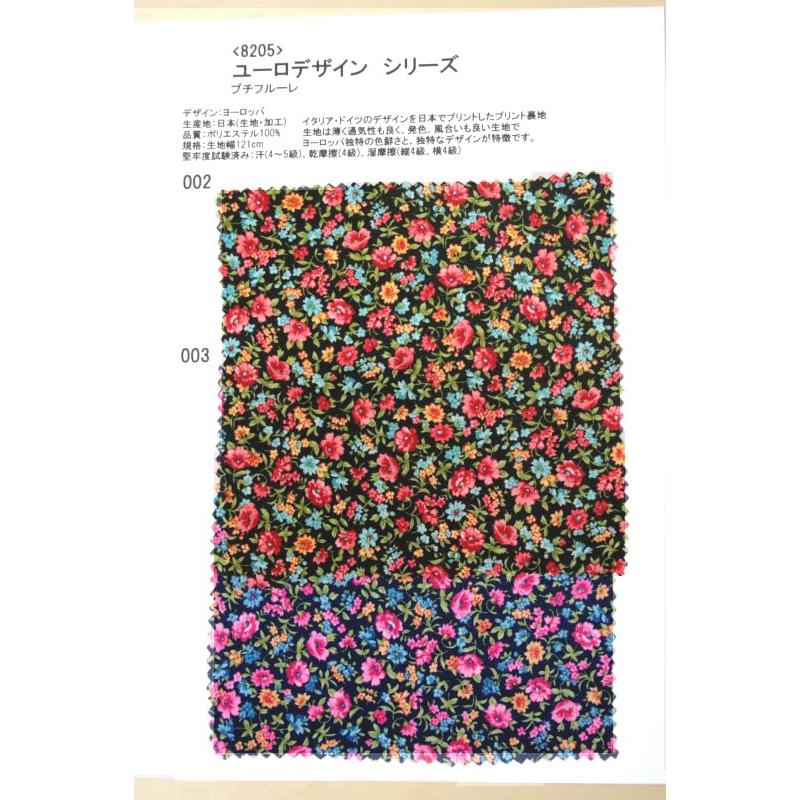 <8205>
ユーロデザイン シリーズ
プチフルーレ
デザイン:ヨーロッパ
生産地:日本(生地・加工) イタリア・ドイツのデザインを日本でプリントしたプリント裏地
品質:ポリエステル100% 生地は薄く通気性も良く、発色、風合いも良い生地で
規格:生地幅121cm ヨーロッパ独特の色鮮さと、独特なデザインが特徴です。
堅牢度試験済み:汗(4～5級)、乾摩擦(4級)、湿摩擦(縦4級、横4級)
002
003